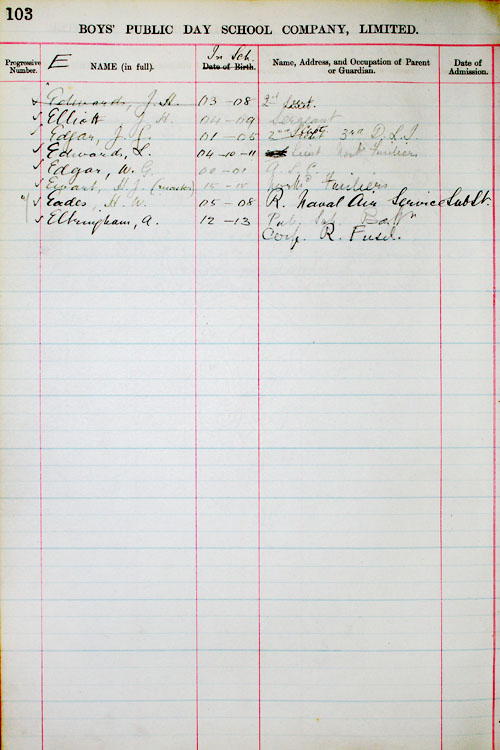 103
BOYS' PUBLIC DAY SCHOOL COMPANY, LIMITED.
Progressive Number. E NAME (in full). In Sch. Date of Birth. Name, Address, and Occupation of Parent or Guardian. Date of Admission.
Edwards, J. H. 03-08 2nd Lieut.
Elliott G. H. 04-09 Sergeant
Edgar, J. L. 01-05 2nd Lieut 3rd D.L.I.
Edwards, L. 04-10-11 Lieut North Fusiliers
Edgar, W. G. 00-01 A.S.C.
H. J. (master) 15-15 North'd Fusiliers
Eades, H. W. 05-08 R. Naval Air Service Sub Lt.
Eltringham, A. 12-13 Pub. Sch. Batn
Corp. R. Fusil.